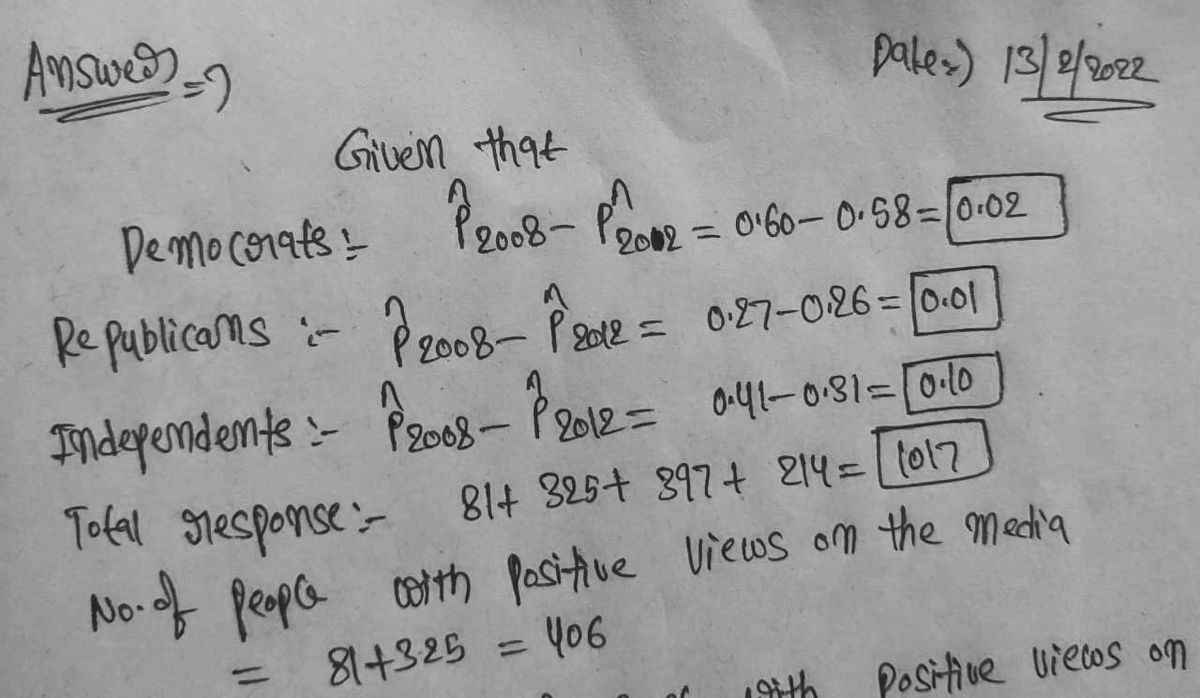 Answer =>
Date:-) 13/2/2022
Given that
Democrats :- p̂2008 - p̂2012 = 0.60 - 0.58 = 0.02
Republicans :- p̂2008 - p̂2012 = 0.27 - 0.26 = 0.01
Independents :- p̂2008 - p̂2012 = 0.41 - 0.31 = 0.10
Total response :- 81 + 325 + 397 + 214 = 1017
No. of people with positive views on the media
= 81 + 325 = 406
with positive views on